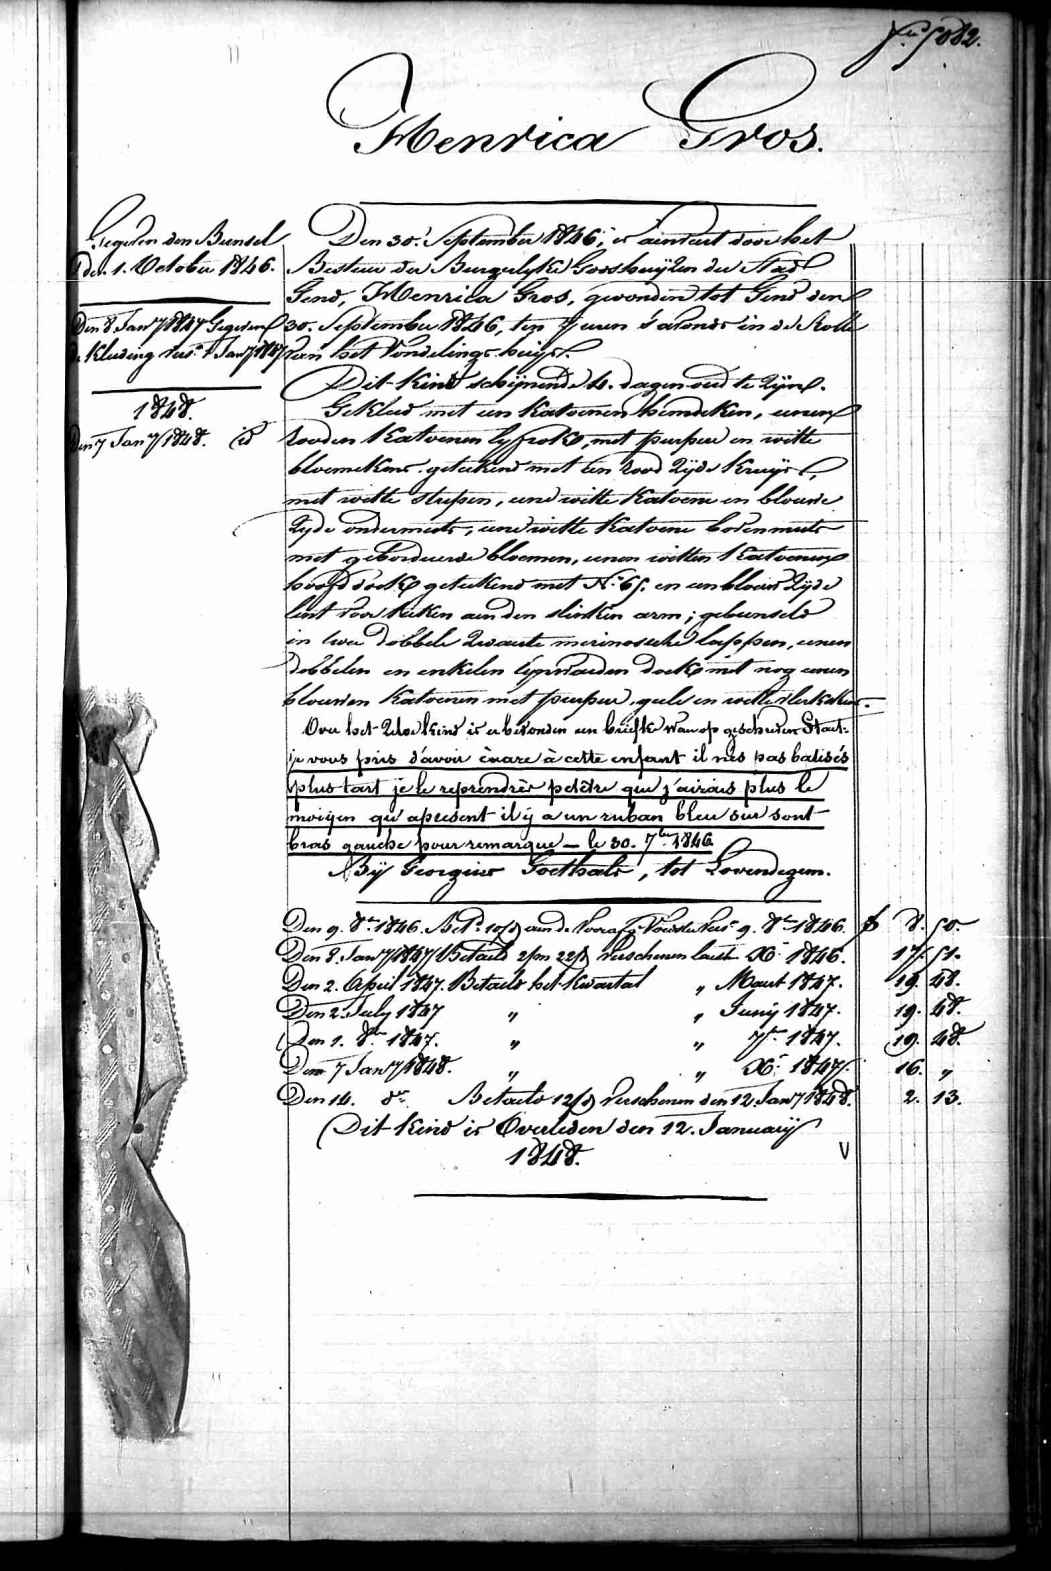 Henrica Gros.
Gegeven den Bunsel
den 1. October 1846.
Den 8 Jan^y 1847 Gegeven
de Kleeding
1848.
Den 7 Jan^y 1848. id
Den 30.' September 1846, is aenveert door het
Bestuer der Burgerlyke Godshuyzen der Stad
Gend, Henrica Gros, gevonden tot Gend den
30. September 1846, ten 7 uren s'avonds in de Rolle
van het Vondelings huys.
Dit Kind schynende 4. dagen oud te zyn.
Gekleed met een Katoenen hemdeken, eenen
rooden Katoenen lyfrok, met purper en witte
bloemekens. geteekend met een rood zyde Kruys,
met witte strepen, eene witte Katoene en blauwe
zyde ondermuts, eene witte Katoene bovenmuts
met geborduerde bloemen, eenen witten Katoenen
hoofddoek geteekend met N.° 65. en een blauw zyde
lint voor teeken aen den slinken arm; gebunseld
in twee dobbele zwarte merinossche lappen, eenen
dobbelen en enkelen lynwaeden doek met nog eenen
blauwen Katoenen met purper, geele en witte vlekskens.
Over het zelve kind is er bevonden een briefke waer op geschreven Staet:
je vous pris d'avoir ènare à cette enfant il nés pas batisés
plus tart je le reprendrèr petètre que j'airais plus le
moiÿen qu'apresent il ÿ a un ruban bleu sur sont
bras gauche pour remarque — le 30. 7^bre 1846
Bÿ Georgine Goethals, tot Lovendegem.
Den 9. 8^er 1846. Bet^d aen de 9. 8^er 1846. f 8. 50.
Den 8. Jan^y 1847 Betaeld verschenen laest X^r 1846. 17. 51.
Den 2. April 1847. Betaeld het Kwartael „ Maert 1847. 19. 48.
Den 2. July 1847 „ „ Juny 1847. 19. 48.
Den 1. 8^er 1847. „ „ 7^er 1847. 19. 48.
Den 7 Jan^y 1848. „ „ X^r 1847. 16. „
Den 14. d^o Betaeld verschenen den 12. Jan^y 1848. 2. 13.
Dit Kind is Overleden den 12. January
1848. V